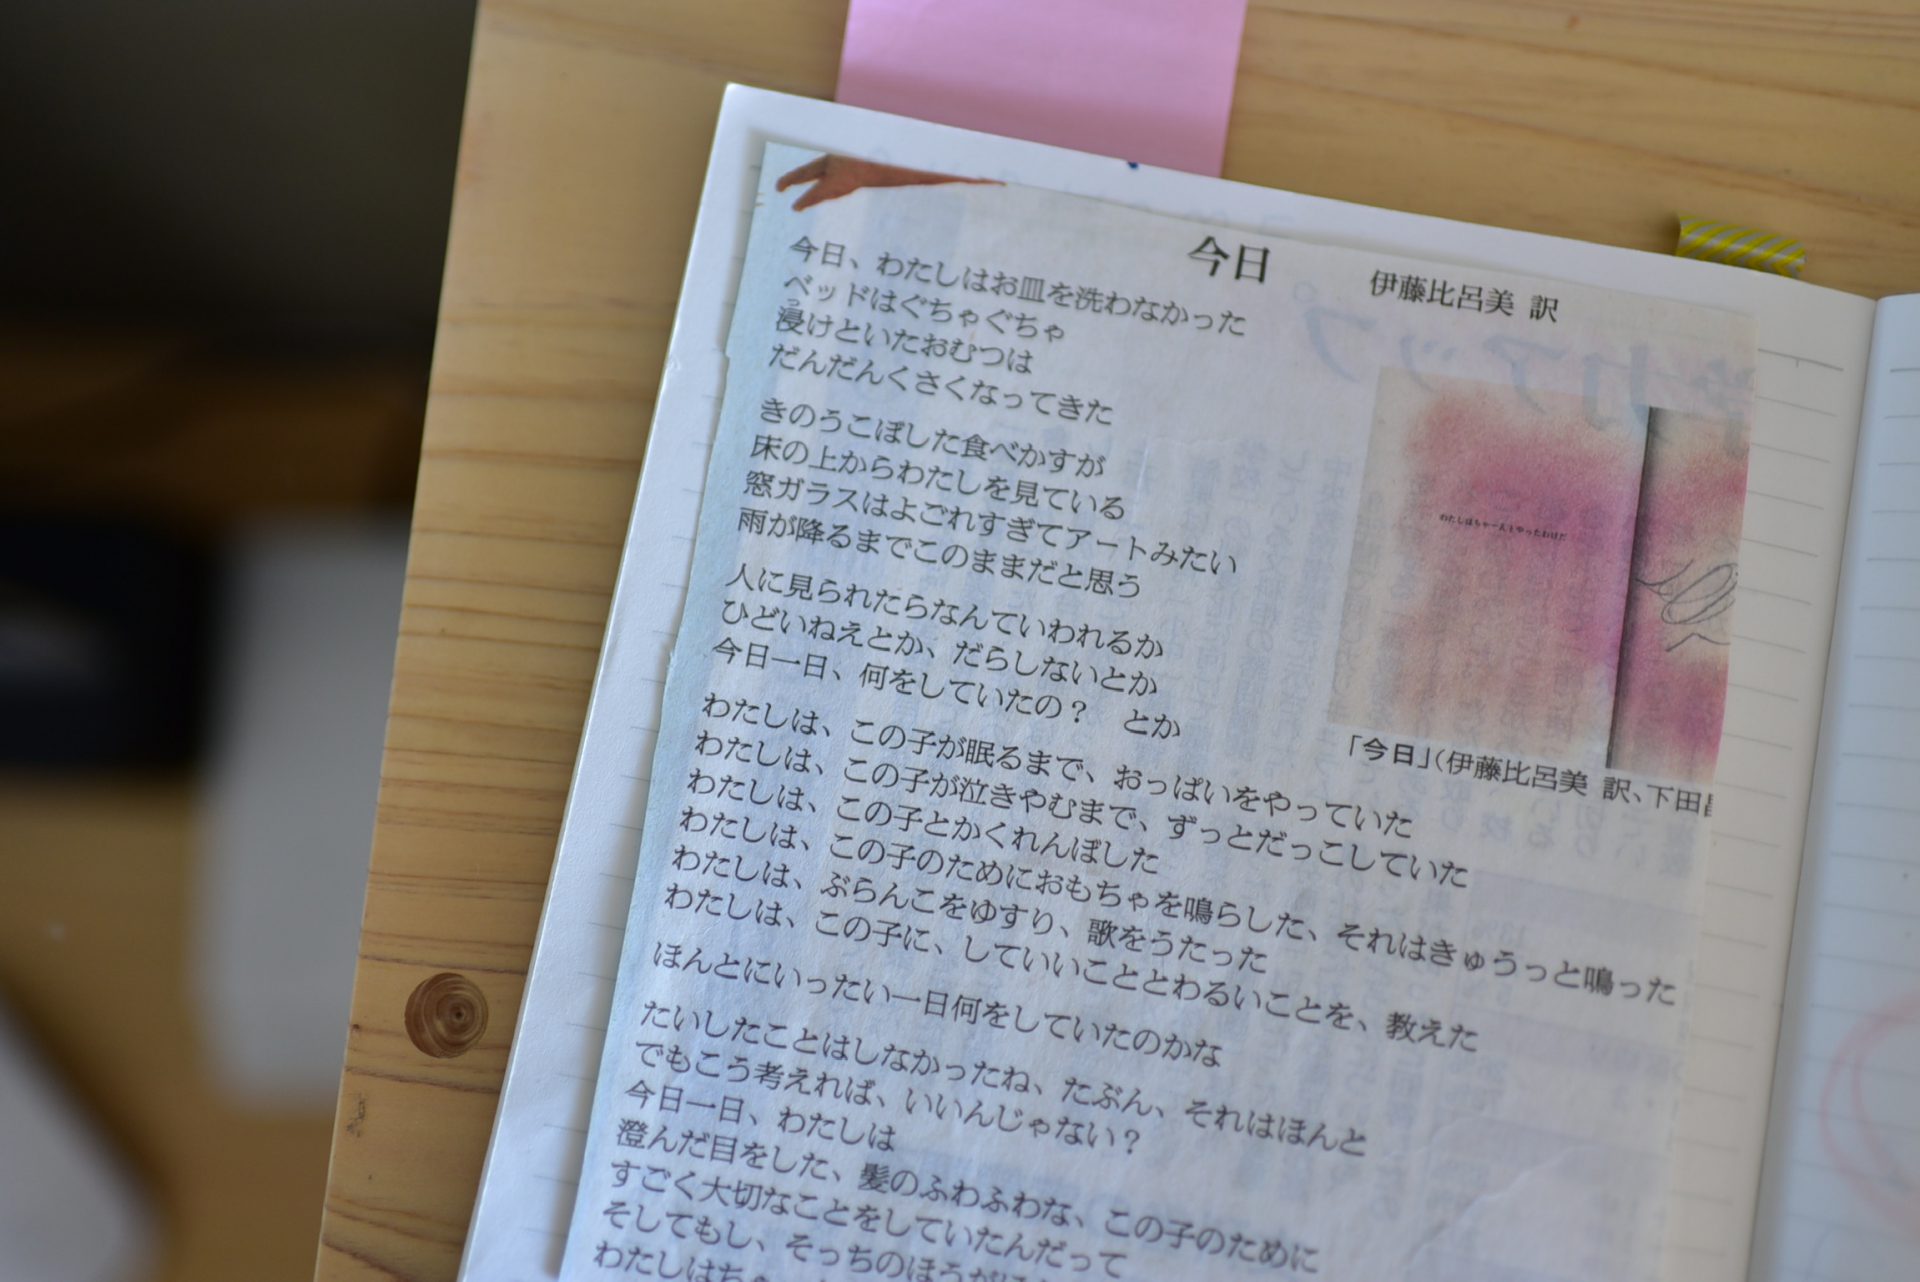 今日
伊藤比呂美 訳
今日、わたしはお皿を洗わなかった
ベッドはぐちゃぐちゃ
浸けといたおむつは
だんだんくさくなってきた
きのうこぼした食べかすが
床の上からわたしを見ている
窓ガラスはよごれすぎてアートみたい
雨が降るまでこのままだと思う
人に見られたらなんていわれるか
ひどいねえとか、だらしないとか
今日一日、何をしていたの？　とか
わたしは、この子が眠るまで、おっぱいをやっていた
わたしは、この子が泣きやむまで、ずっとだっこしていた
わたしは、この子とかくれんぼした
わたしは、この子のためにおもちゃを鳴らした、それはきゅうっと鳴った
わたしは、ぶらんこをゆすり、歌をうたった
わたしは、この子に、していいこととわるいことを、教えた
ほんとにいったい一日何をしていたのかな
たいしたことはしなかったね、たぶん、それはほんと
でもこう考えれば、いいんじゃない？
今日一日、わたしは
澄んだ目をした、髪のふわふわな、この子のために
すごく大切なことをしていたんだって
そしてもし、そっちのほうがほ
わたしはち
わたしはちゃーんとやったわけだ
「今日」（伊藤比呂美 訳、下田